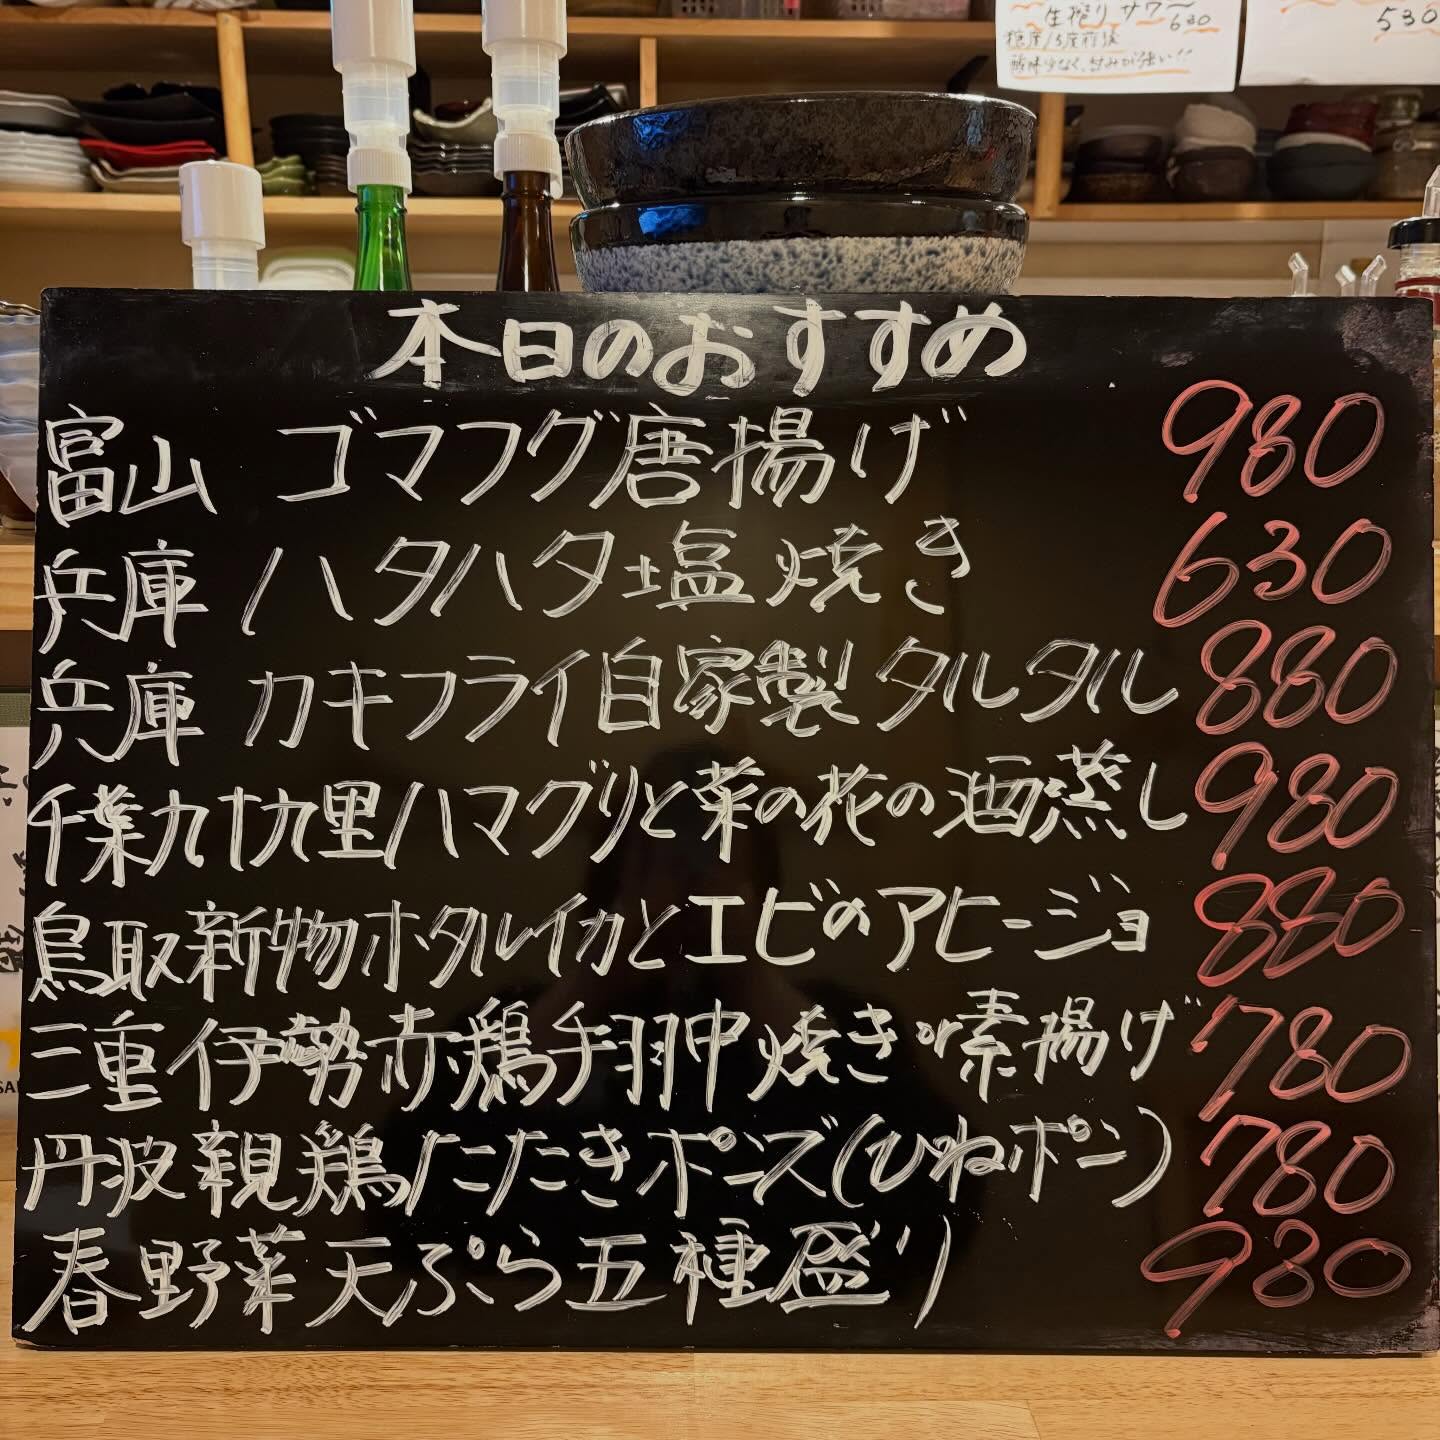 生搾りサワー
630
530
本日のおすすめ
富山 ゴマフグ唐揚げ 980
兵庫 ハタハタ塩焼き 630
兵庫 カキフライ自家製タルタル 880
千葉九十九里ハマグリと菜の花の酒蒸し 980
鳥取新物ホタルイカとエビのアヒージョ 880
三重伊勢赤鶏手羽中焼きor素揚げ 780
丹波親鶏たたきポンズ(ひねポン) 780
春野菜天ぷら五種盛り 930